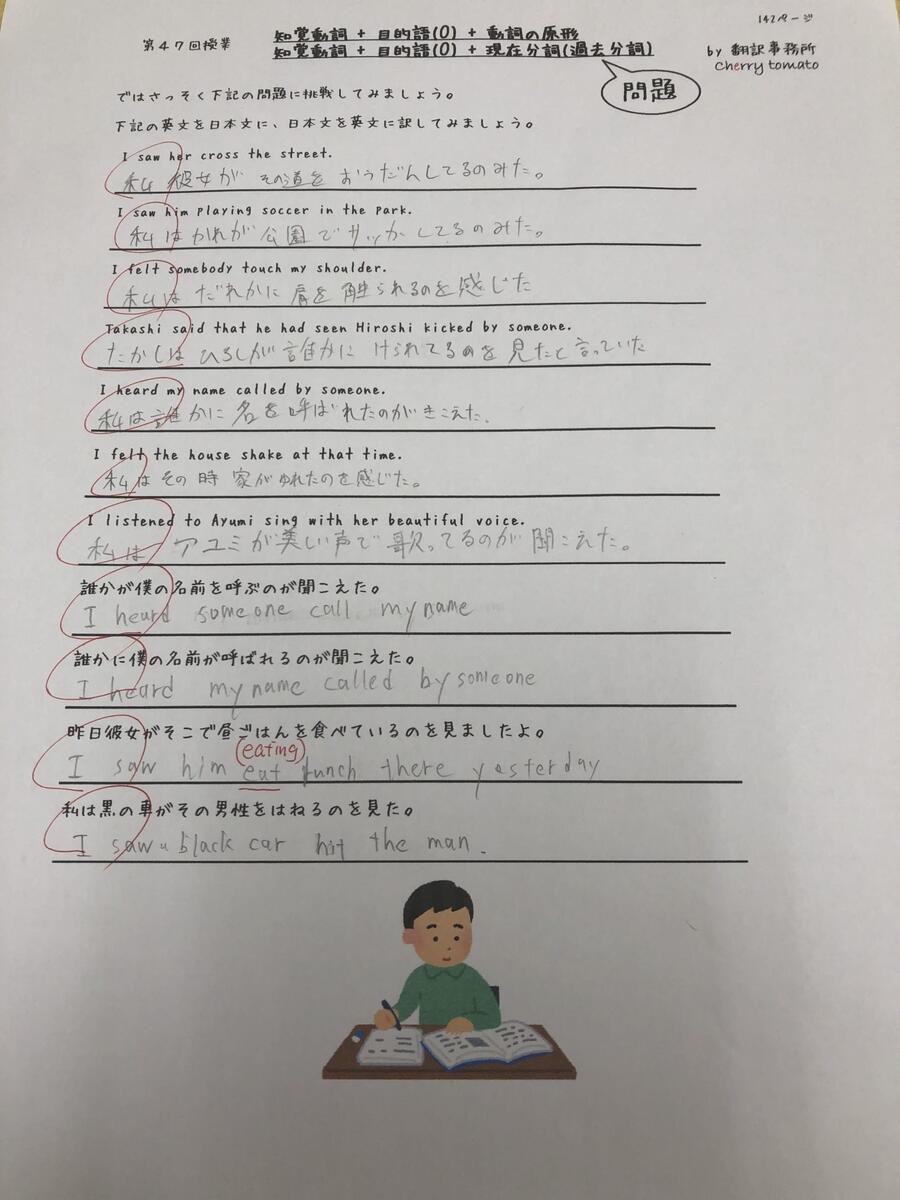 142ページ
第47回授業
知覚動詞 + 目的語(O) + 動詞の原形
知覚動詞 + 目的語(O) + 現在分詞(過去分詞)
by 翻訳事務所
cherry tomato
問題
ではさっそく下記の問題に挑戦してみましょう。
下記の英文を日本文に、日本文を英文に訳してみましょう。
I saw her cross the street.
私 彼女が その道を おうだんしてるのみた。
I saw him playing soccer in the park.
私はかれが公園でサッカーしてるのみた。
I felt somebody touch my shoulder.
私は だれかに 肩を触られるのを感じた
Takashi said that he had seen Hiroshi kicked by someone.
たかしは ひろしが誰かに けられてるのを見たと言っていた
I heard my name called by someone.
私は誰かに名を呼ばれたのがきこえた.
I felt the house shake at that time.
私はその時 家がゆれたのを感じた。
I listened to Ayumi sing with her beautiful voice.
私は アユミが美しい声で歌ってるのが聞こえた。
誰かが僕の名前を呼ぶのが聞こえた。
I heard someone call my name
誰かに僕の名前が呼ばれるのが聞こえた。
I heard my name called by someone
昨日彼女がそこで昼ごはんを食べているのを見ましたよ。
eating
I saw him eat lunch there yesterday
私は黒の車がその男性をはねるのを見た。
I saw a black car hit the man.